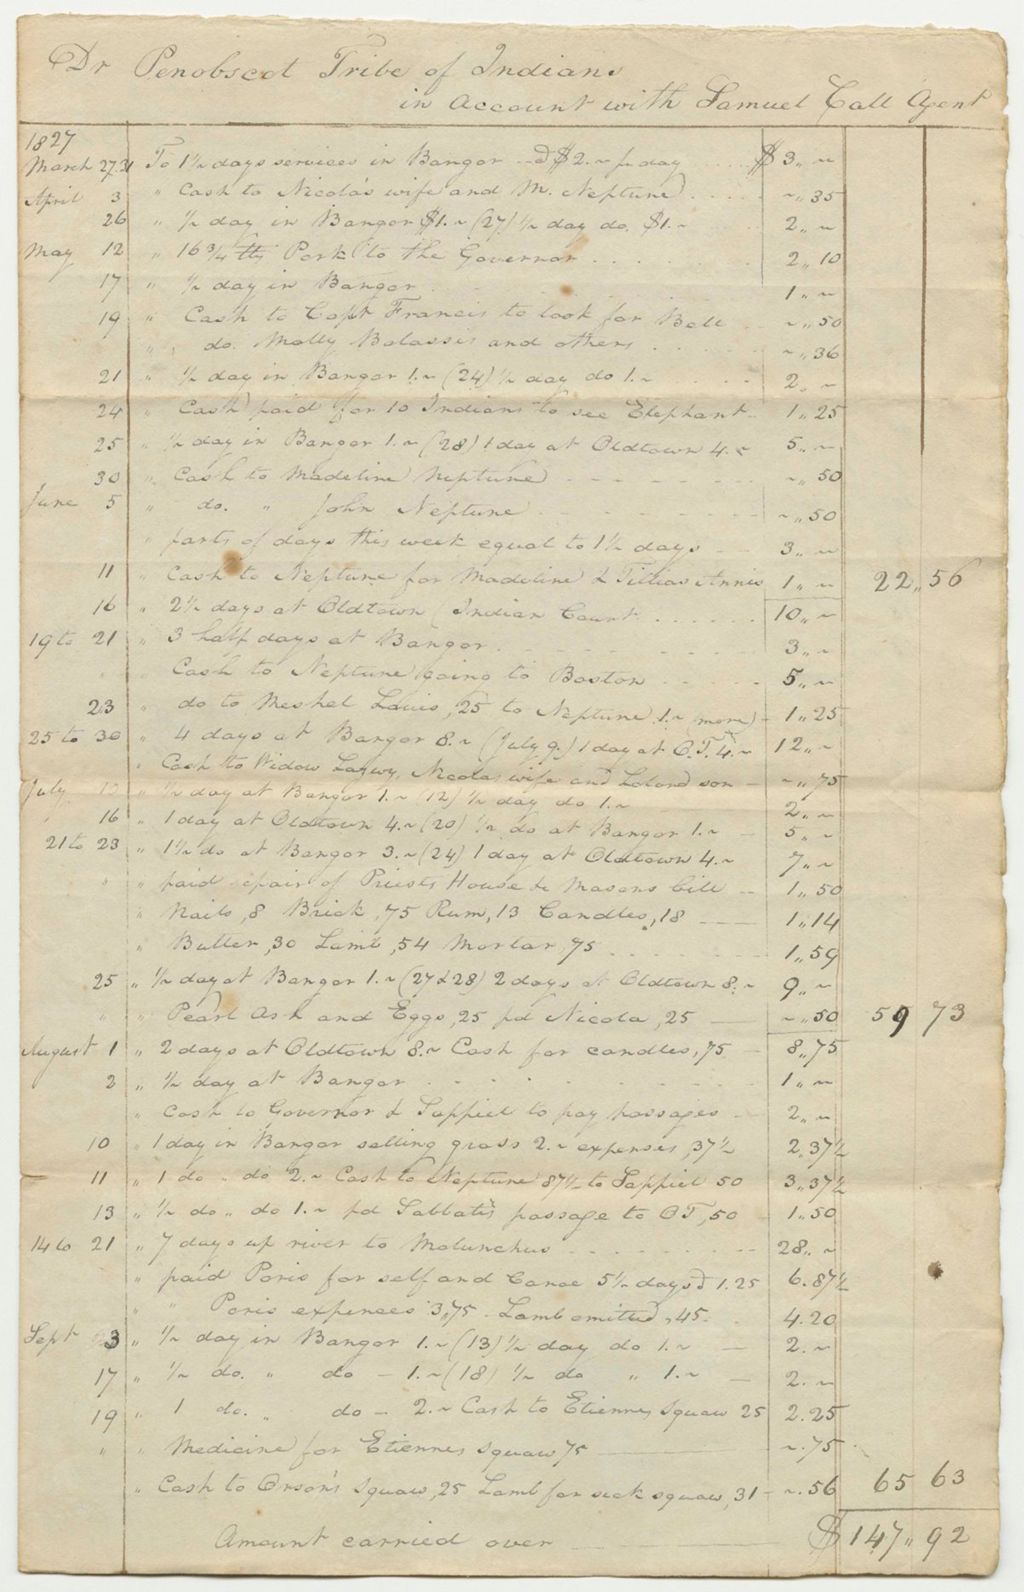 Dr Penobscot Tribe of Indians
in Account with Samuel Call Agent
1827
March 27.31 To 1½ days services in Bangor @ $2.~ pr day $3,,~
April 3 " Cash to Nicola's wife and M. Neptune ~,,35
26 " ½ day in Bangor $1.~ (27) ½ day do. $1.~ 2,,~
May 12 " 16¾ lbs Pork to the Governor 2,,10
17 " ½ day in Bangor 1,,~
19 " Cash to Capt Francis to look for Bell ~,,50
" " do. Molly Balassis and others ~,,36
21 " ½ day in Bangor 1.~ (24) ½ day do 1.~ 2,,~
24 " Cash paid for 10 Indians to see Elephant 1,,25
25 " ½ day in Bangor 1.~ (28) 1 day at Oldtown 4.~ 5,,~
30 " Cash to Madeline Neptune ~,,50
June 5 " do. " John Neptune ~,,50
" parts of days this week equal to 1½ days 3,,~
11 " Cash to Neptune for Madeline & Annis 1,,~ 22,,56
16 " 2½ days at Oldtown (Indian Court 10,,~
19 to 21 " 3 half days at Bangor 3,,~
" " Cash to Neptune going to Boston 5,,~
23 " do to Meshel Lewis ,25 to Neptune 1.~ (more) 1,,25
25 to 30 " 4 days at Bangor 8.~ (July 9.) 1 day at O.T. 4.~ 12,,~
" Cash to Widow Nicolas wife and son ~,,75
July 12 " ½ day at Bangor 1.~ (12) ½ day do 1.~ 2,,~
" 16 " 1 day at Oldtown 4.~ (20) ½ do at Bangor 1.~ 5,,~
21 to 23 " 1½ do at Bangor 3.~ (24) 1 day at Oldtown 4.~ 7,,~
" " paid repair of Priests House &c Masons bill 1,,50
" Nails ,8 Brick ,75 Rum, 13 Candles, 18 1,,14
" Butter ,30 Lamb ,54 Mortar 75 1,,59
25 " ½ day at Bangor 1.~ (27 & 28) 2 days at Oldtown 8.~ 9,,~
" " Pearl Ash and Eggs ,25 pd Nicola ,25 ~,,50 59 73
August 1 " 2 days at Oldtown 8.~ Cash for candles, 75 8,,75
2 " ½ day at Bangor 1,,~
" Cash to Governor & Sappiel to pay passages 2,,~
10 " 1 day in Bangor selling grass 2.~ expenses ,37½ 2,37½
11 " 1 do " do 2.~ Cash to Neptune 87½ to Sappiel 50 3,,37½
13 " ½ do " do 1.~ pd Sabbatis passage to OT, 50 1,,50
14 to 21 " 7 days up river to Molunchus 28,,~
" paid Poris for self and Canoe 5½ days @ 1.25 6.87½
" " Poris expences 3,75 Lamb omitted ,45 4.20
Sept 3 " ½ day in Bangor 1.~ (13) ½ day do 1.~ 2.~
17 " ½ do. " do - 1.~ (18) ½ do " 1.~ 2.~
19 " 1 do. " do - 2.~ Cash to Etiennes Squaw 25 2.25
" " Medicine for Etiennes Squaw 75 ~.75
" Cash to Orson's Squaw, 25 Lamb for sick squaw, 31 ~.56 65 63
Amount carried over $147,,92